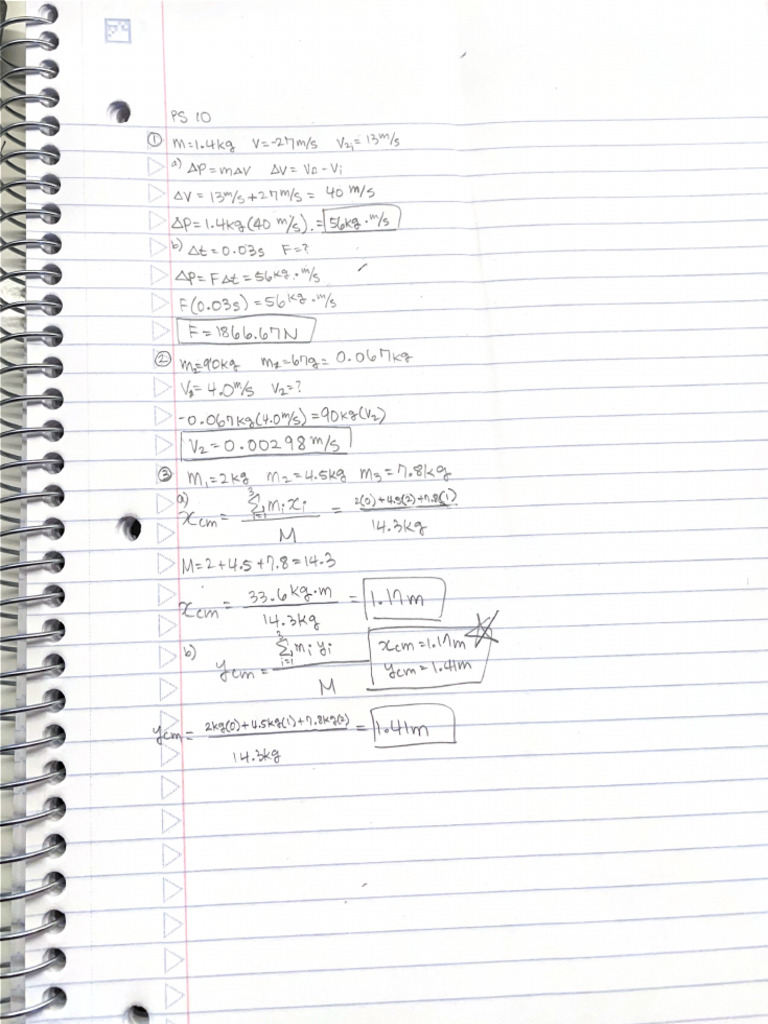 PS 10
① m=1.4kg V=-27m/s V2i=13m/s
a) ΔP=mΔV ΔV= V2-Vi
ΔV = 13m/s+27m/s = 40 m/s
ΔP=1.4kg(40 m/s).=56kg·m/s
b) Δt=0.03s F=?
ΔP=FΔt=56kg·m/s
F(0.03s)=56kg·m/s
F=1866.67N
② m2=90kg m2=67g= 0.067kg
V2= 4.0m/s V2=?
-0.067kg(4.0m/s)=90kg(V2)
V2=0.00298m/s
③ m1=2kg m2=4.5kg m3=7.8kg
a) xcm= 3Σi=1 mixi / M = 2(0)+4.5(2)+7.8(1) / 14.3kg
M=2+4.5+7.8=14.3
xcm= 33.6kg·m / 14.3kg = 1.17m
b) ycm= 3Σi=1 mi yi / M
xcm=1.17m
ycm=1.41m
ycm= 2kg(0)+4.5kg(1)+7.8kg(2) / 14.3kg = 1.41m